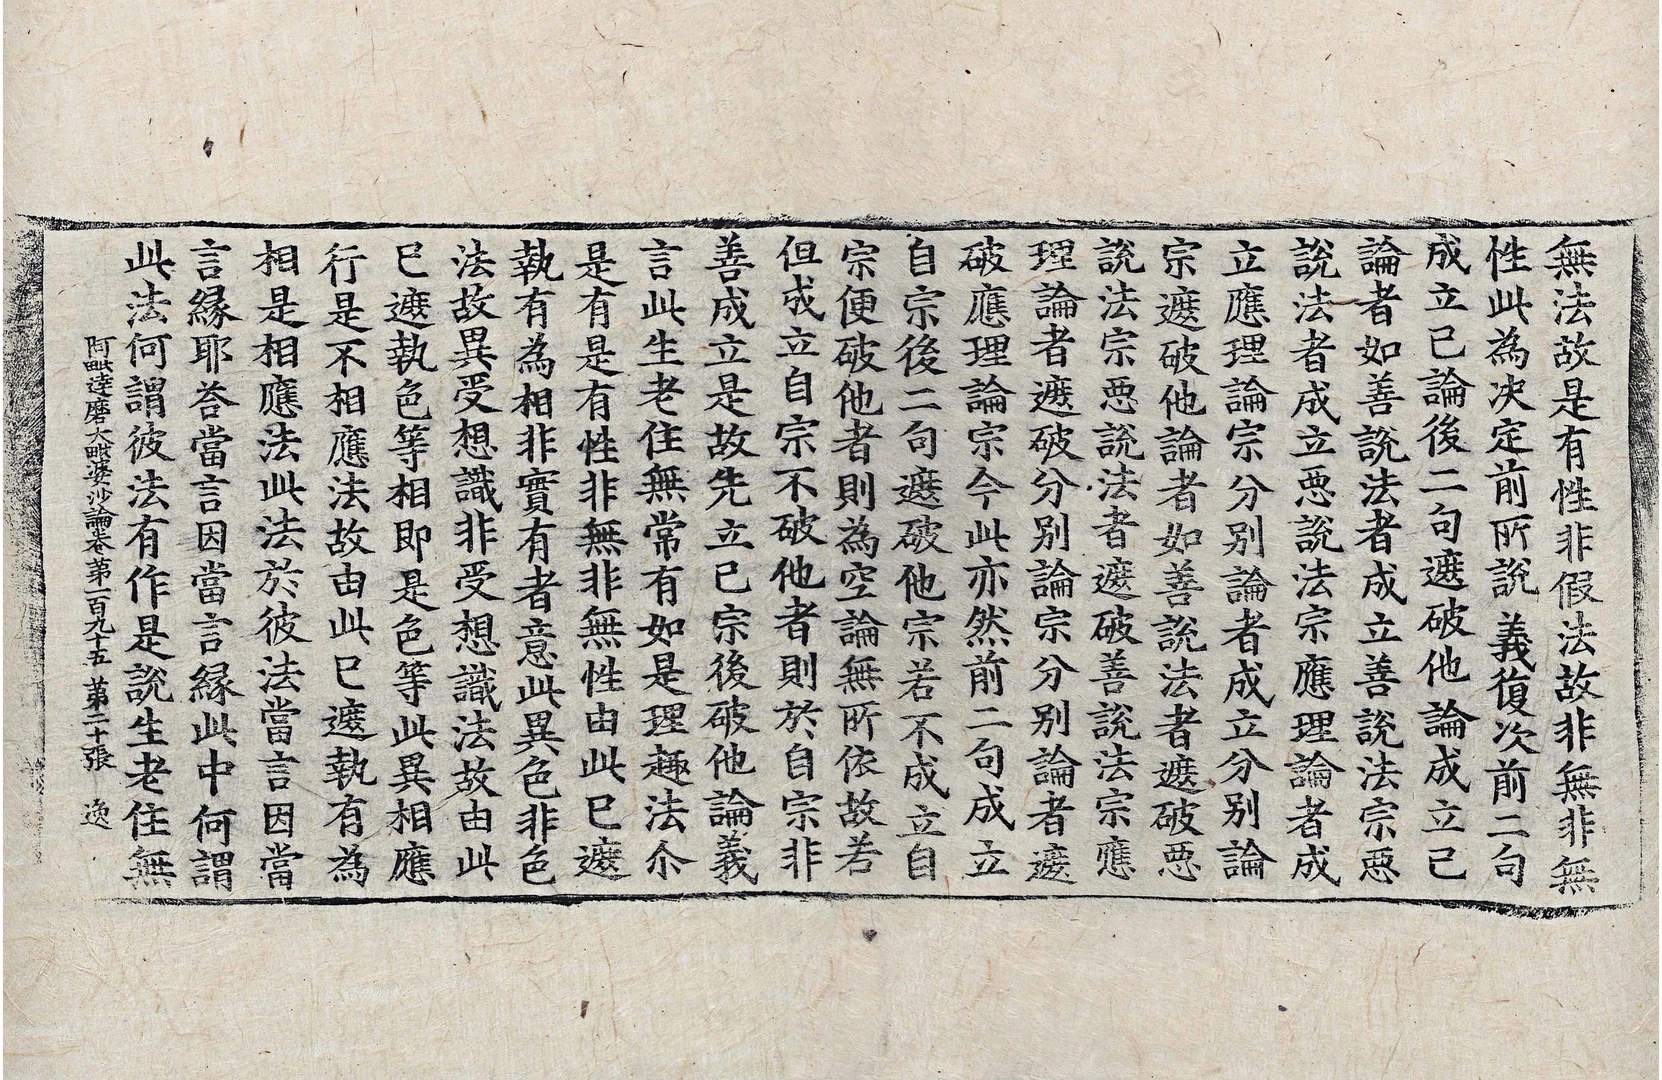 無法故是有性非假法故非無非無
性此為决定前所說義復次前二句
成立已論後二句遮破他論成立已
論者如善說法者成立善說法宗惡
說法者成立惡說法宗應理論者成
立應理論宗分別論者成立分別論
宗遮破他論者如善說法者遮破惡
說法宗惡說法者遮破善說法宗應
理論者遮破分別論宗分別論者遮
破應理論宗今此亦然前二句成立
自宗後二句遮破他宗若不成立自
宗便破他者則為空論無所依故若
但成立自宗不破他者則於自宗非
善成立是故先立已宗後破他論義
言此生老住無常有如是理趣法尒
是有是有性非無非無性由此已遮
執有為相非實有者意此異色非色
法故異受想識非受想識法故由此
已遮執色等相即是色等此異相應
行是不相應法故由此已遮執有為
相是相應法此法於彼法當言因當
言縁耶荅當言因當言縁此中何謂
此法何謂彼法有作是說生老住無
阿毗達磨大毗婆沙論卷第一百九十五 第二十張 逸